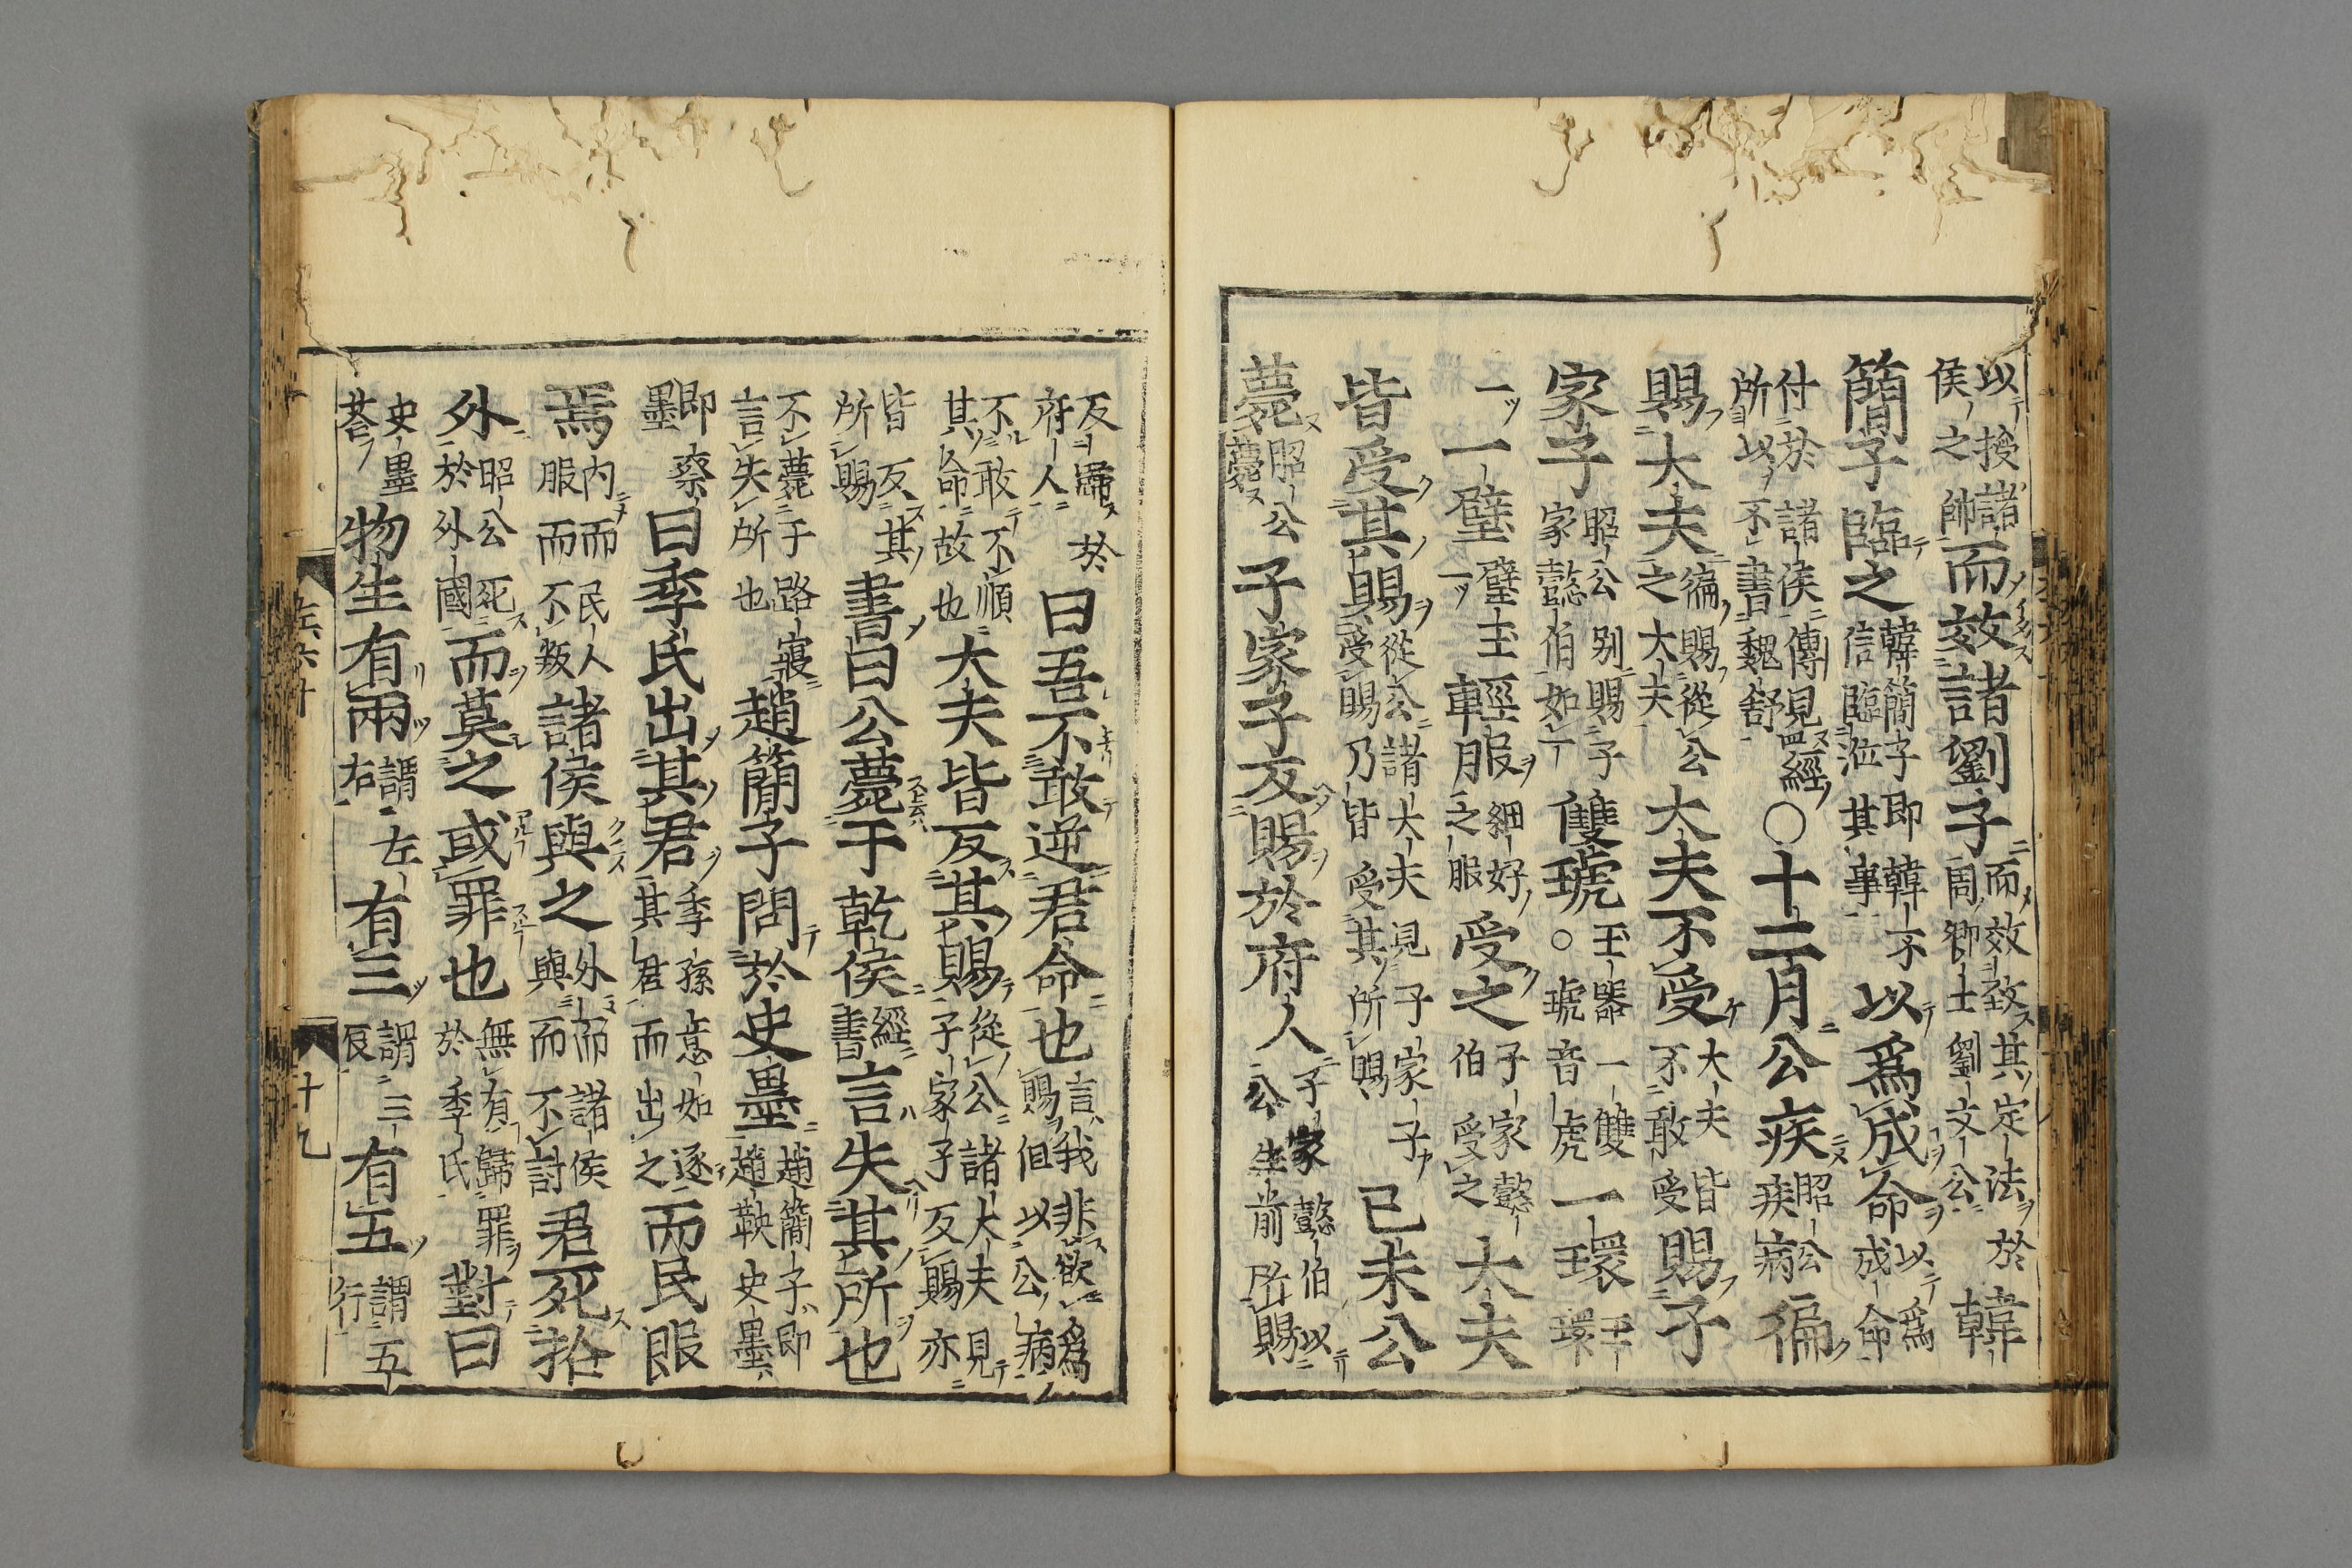 以授諸侯之帥而效諸劉子而效致其定法於周卿士劉文公韓
簡子臨之韓簡子即韓不信臨涖其事以爲成命以爲成命
付於諸侯傳見經所以不書魏舒○十二月公疾昭公疾病徧
賜大夫徧賜從公之大夫大夫不受大夫皆不敢受賜子
家子昭公別賜子家懿伯如雙琥玉器一雙○琥音虎一環玉環
一一璧璧玉一輕服細好之服受之子家懿伯受之大夫
皆受其賜從公諸大夫見子家子受賜乃皆受其所賜己未公
薨昭公薨子家子反賜於府人子家懿伯以公生前所賜
反歸於府人曰吾不敢逆君命也言我非欲爲賜但以公病
不敢不順其命故也大夫皆反其賜從公諸大夫見子家子反賜亦
皆反其所賜書曰公薨于乾侯經書言失其所也
不薨于路寢言失所也趙簡子問於史墨趙簡子即趙鞅史墨
即蔡墨曰季氏出其君季孫意如逐其君而出之而民服
焉內而民人服而不叛諸侯與之外而諸侯與而不討君死於
外昭公死於外國而莫之或罪也無有歸罪於季氏對曰
史墨荅物生有兩謂左右有三謂三辰有五謂五行
左六十
十九